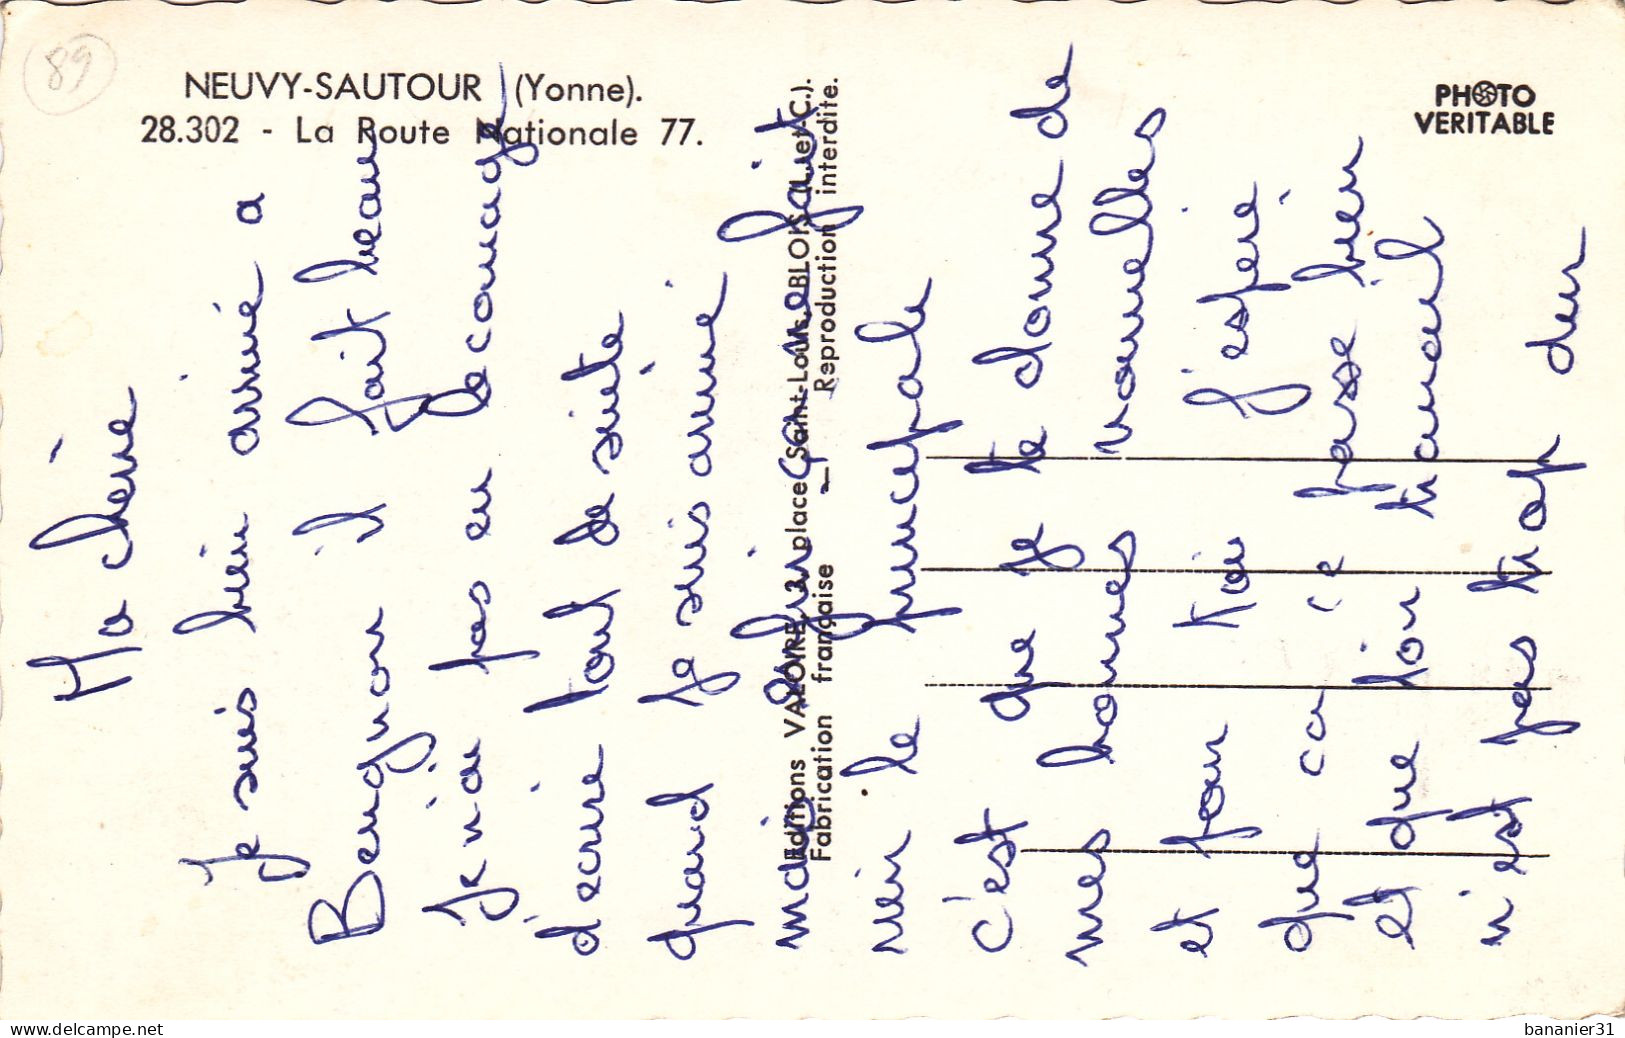 89
NEUVY-SAUTOUR (Yonne).
28.302 - La Route Nationale 77.
PHOTO
VERITABLE
Editions VALOIRE, 3, place Saint-Louis, BLOIS (L.-et-C.).
Fabrication française — Reproduction interdite.
Ma chérie
Je suis bien arrivé a
il fait beau
Je n'ai pas eu le courage
d'ecrire tout de suite
quand je suis arrivé
mais enfin ça ne fait
rien le principale
c'est que je te donne de
mes bonnes nouvelles
et pour toi j'espère
que ca ce passe bien
et que ton travail
n'est pas trop dur
www.delcampe.net
bananier31